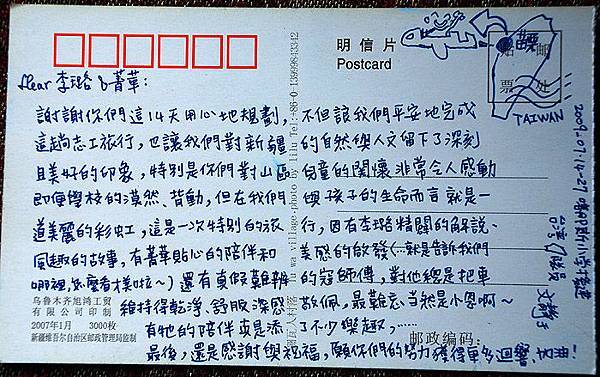 明信片
Postcard
邮
票 处
TAIWAN
Dear 李璐 & 菁華：
謝謝你們這14天用心地規劃，不但讓我們平安地完成
這趟志工旅行，也讓我們對新疆的自然與人文留下了深刻
且美好的印象，特別是你們對山區兒童的關懷非常令人感動
即便學校的漠然、背動，但在我們與孩子的生命而言就是一
道美麗的彩虹，這是一次特別的旅行，因有李璐精闢的解說、
風趣的故事，有菁華貼心的陪伴和美感的啟發（...就是告訴我們
哪裡，怎麼看才美啦~）還有真假難辨的寇師傅，對他總是把車
維持得乾淨、舒服深感敬佩，最難忘當然是小恩啊~
有牠的陪伴真是添了不少樂趣，......
最後，還是感謝與祝福，願你們的努力獲得更多迴響
2009.07.14-27
乌鲁木齐旭鸿工贸
有限公司印制
2007年1月 3000枚
新疆维吾尔自治区邮政管理局监制
邮政编码：
village·photo by liLu Tel:+86-0-13999843342